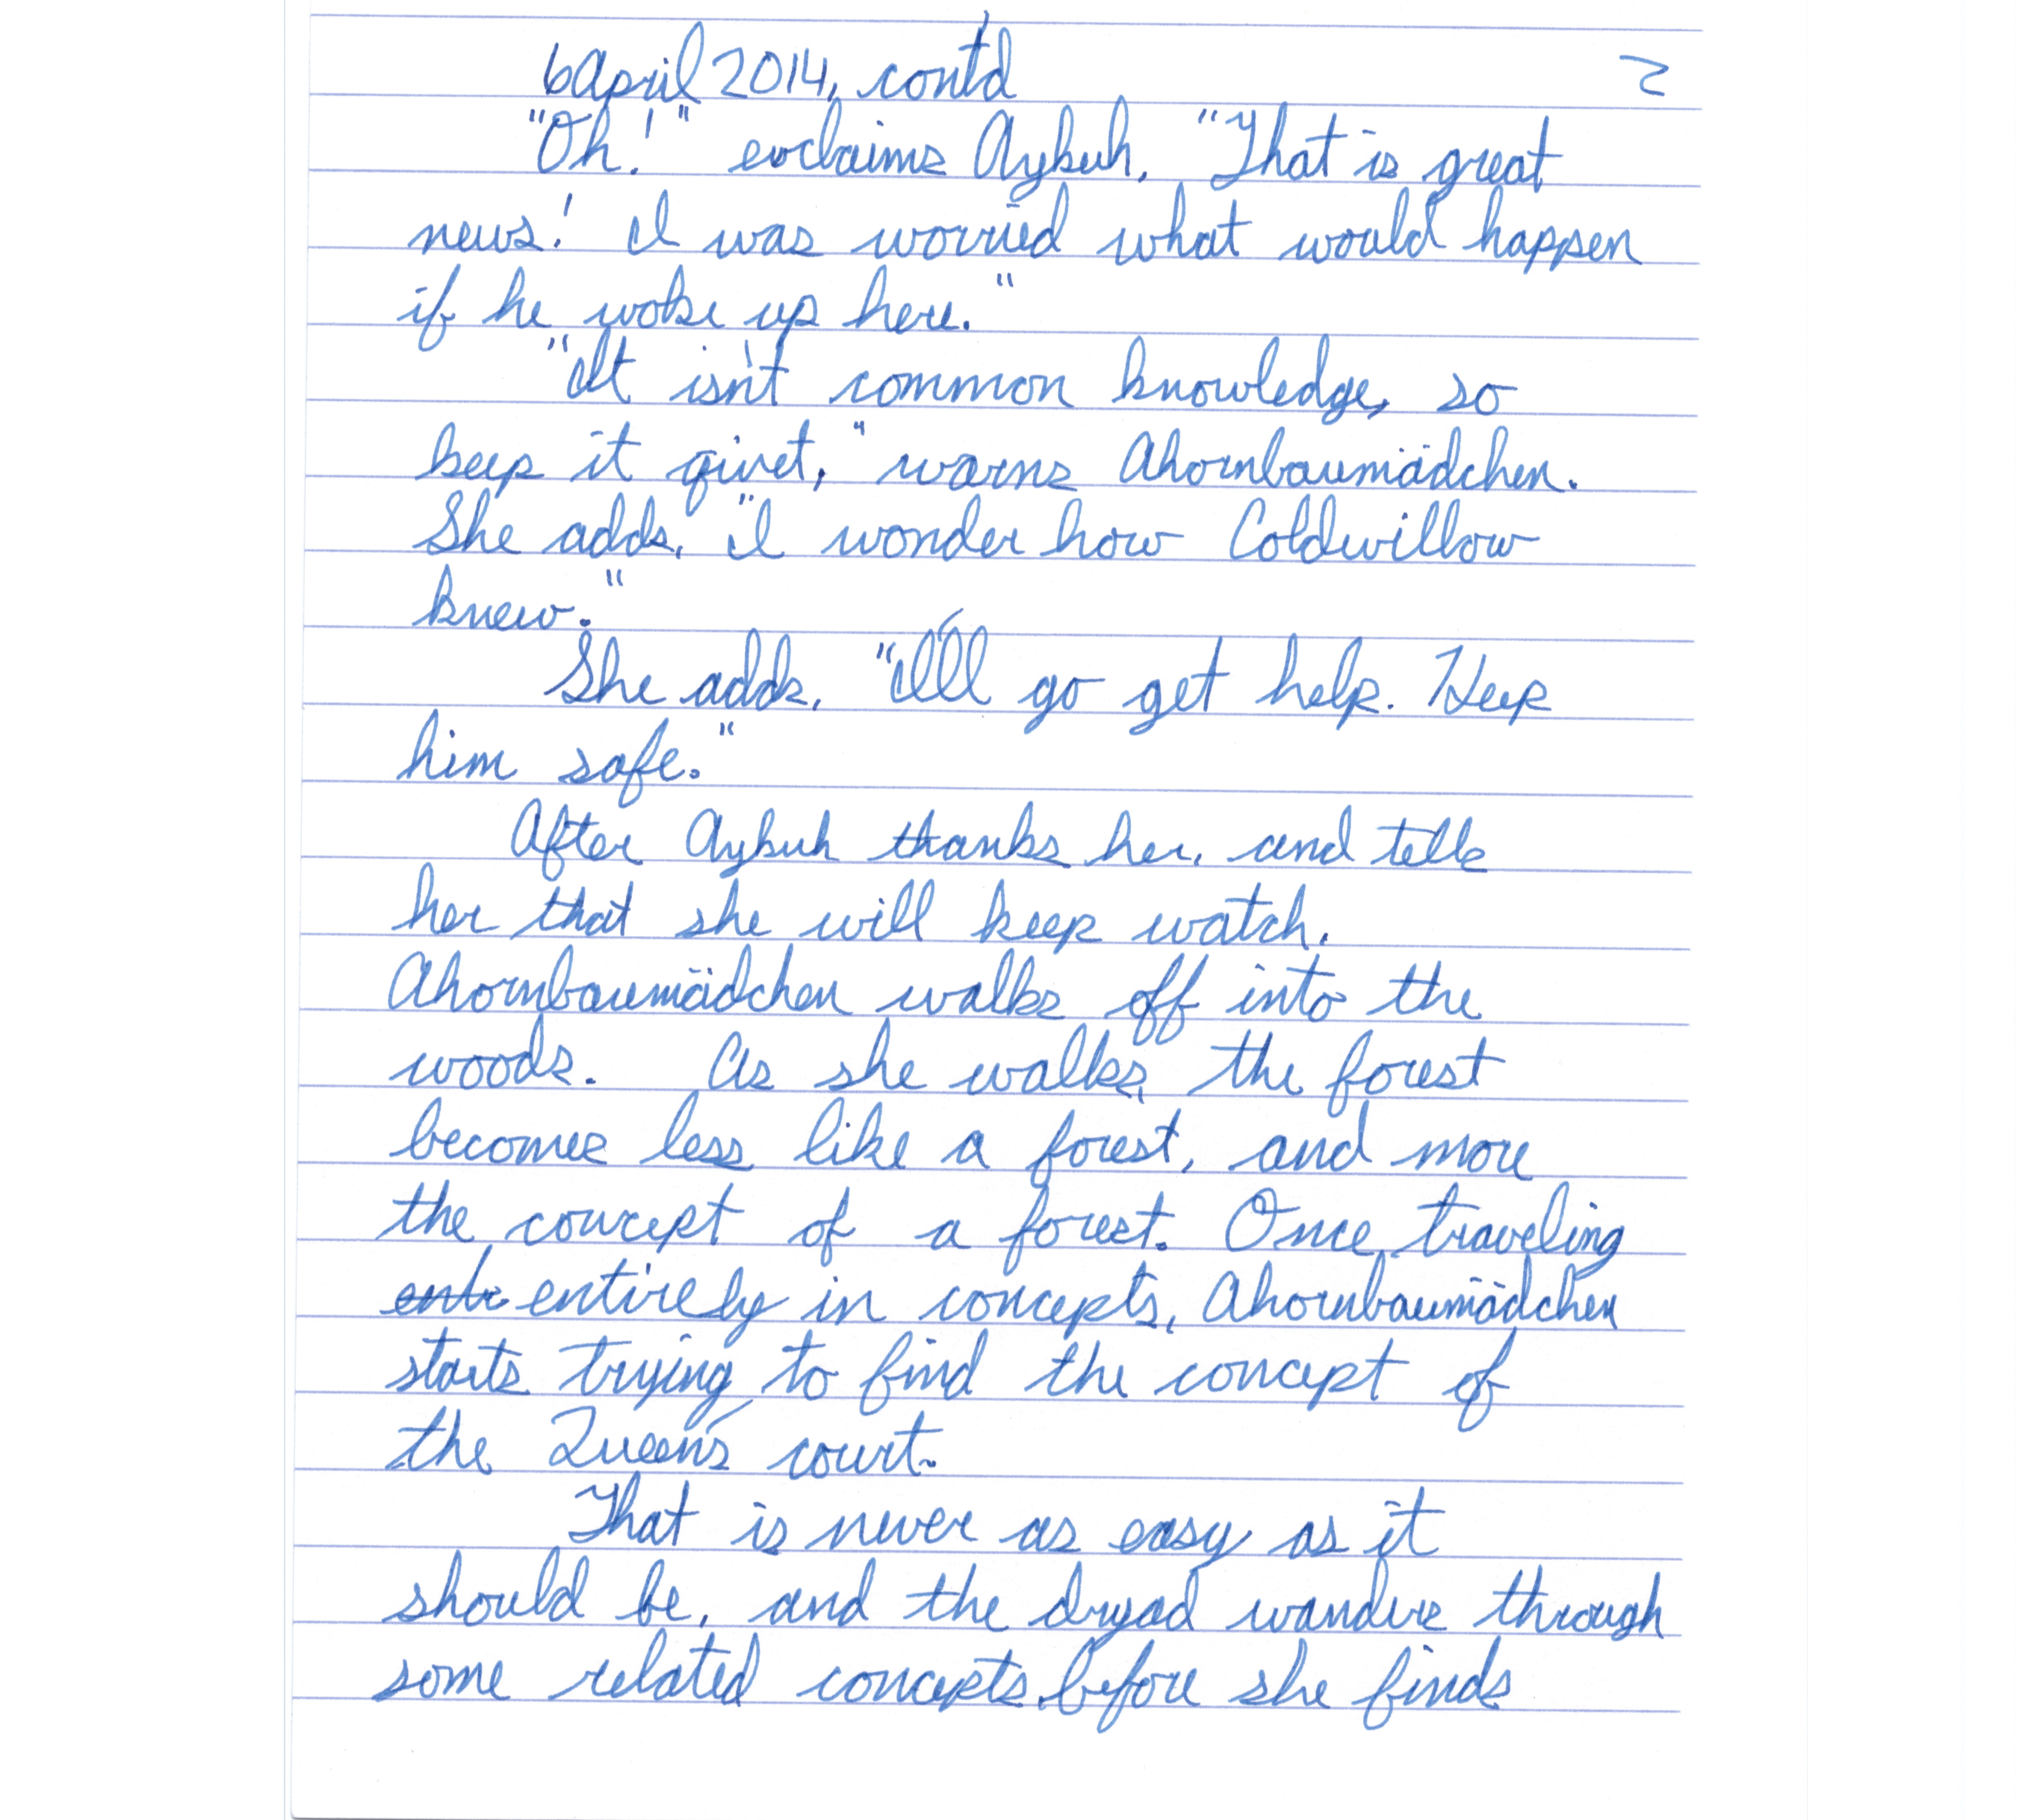 6 April 2014, cont'd 2
"Oh!" exclaims Aykuh. "That is great
news! I was worried what would happen
if he woke up here."
"It isn't common knowledge, so
keep it qiuet," warns Ahornbaumädchen.
She adds, "I wonder how Coldwillow
knew."
She adds, "I'll go get help. Keep
him safe."
After Aykuh thanks her, and tells
her that she will keep watch,
Ahornbaumädchen walks off into the
woods. As she walks, the forest
becomes less like a forest, and more
the concept of a forest. Once traveling
entr entirely in concepts, Ahornbaumädchen
starts trying to find the concept of
the Queen's court.
That is never as easy as it
should be, and the dryad wanders through
some related concepts before she finds